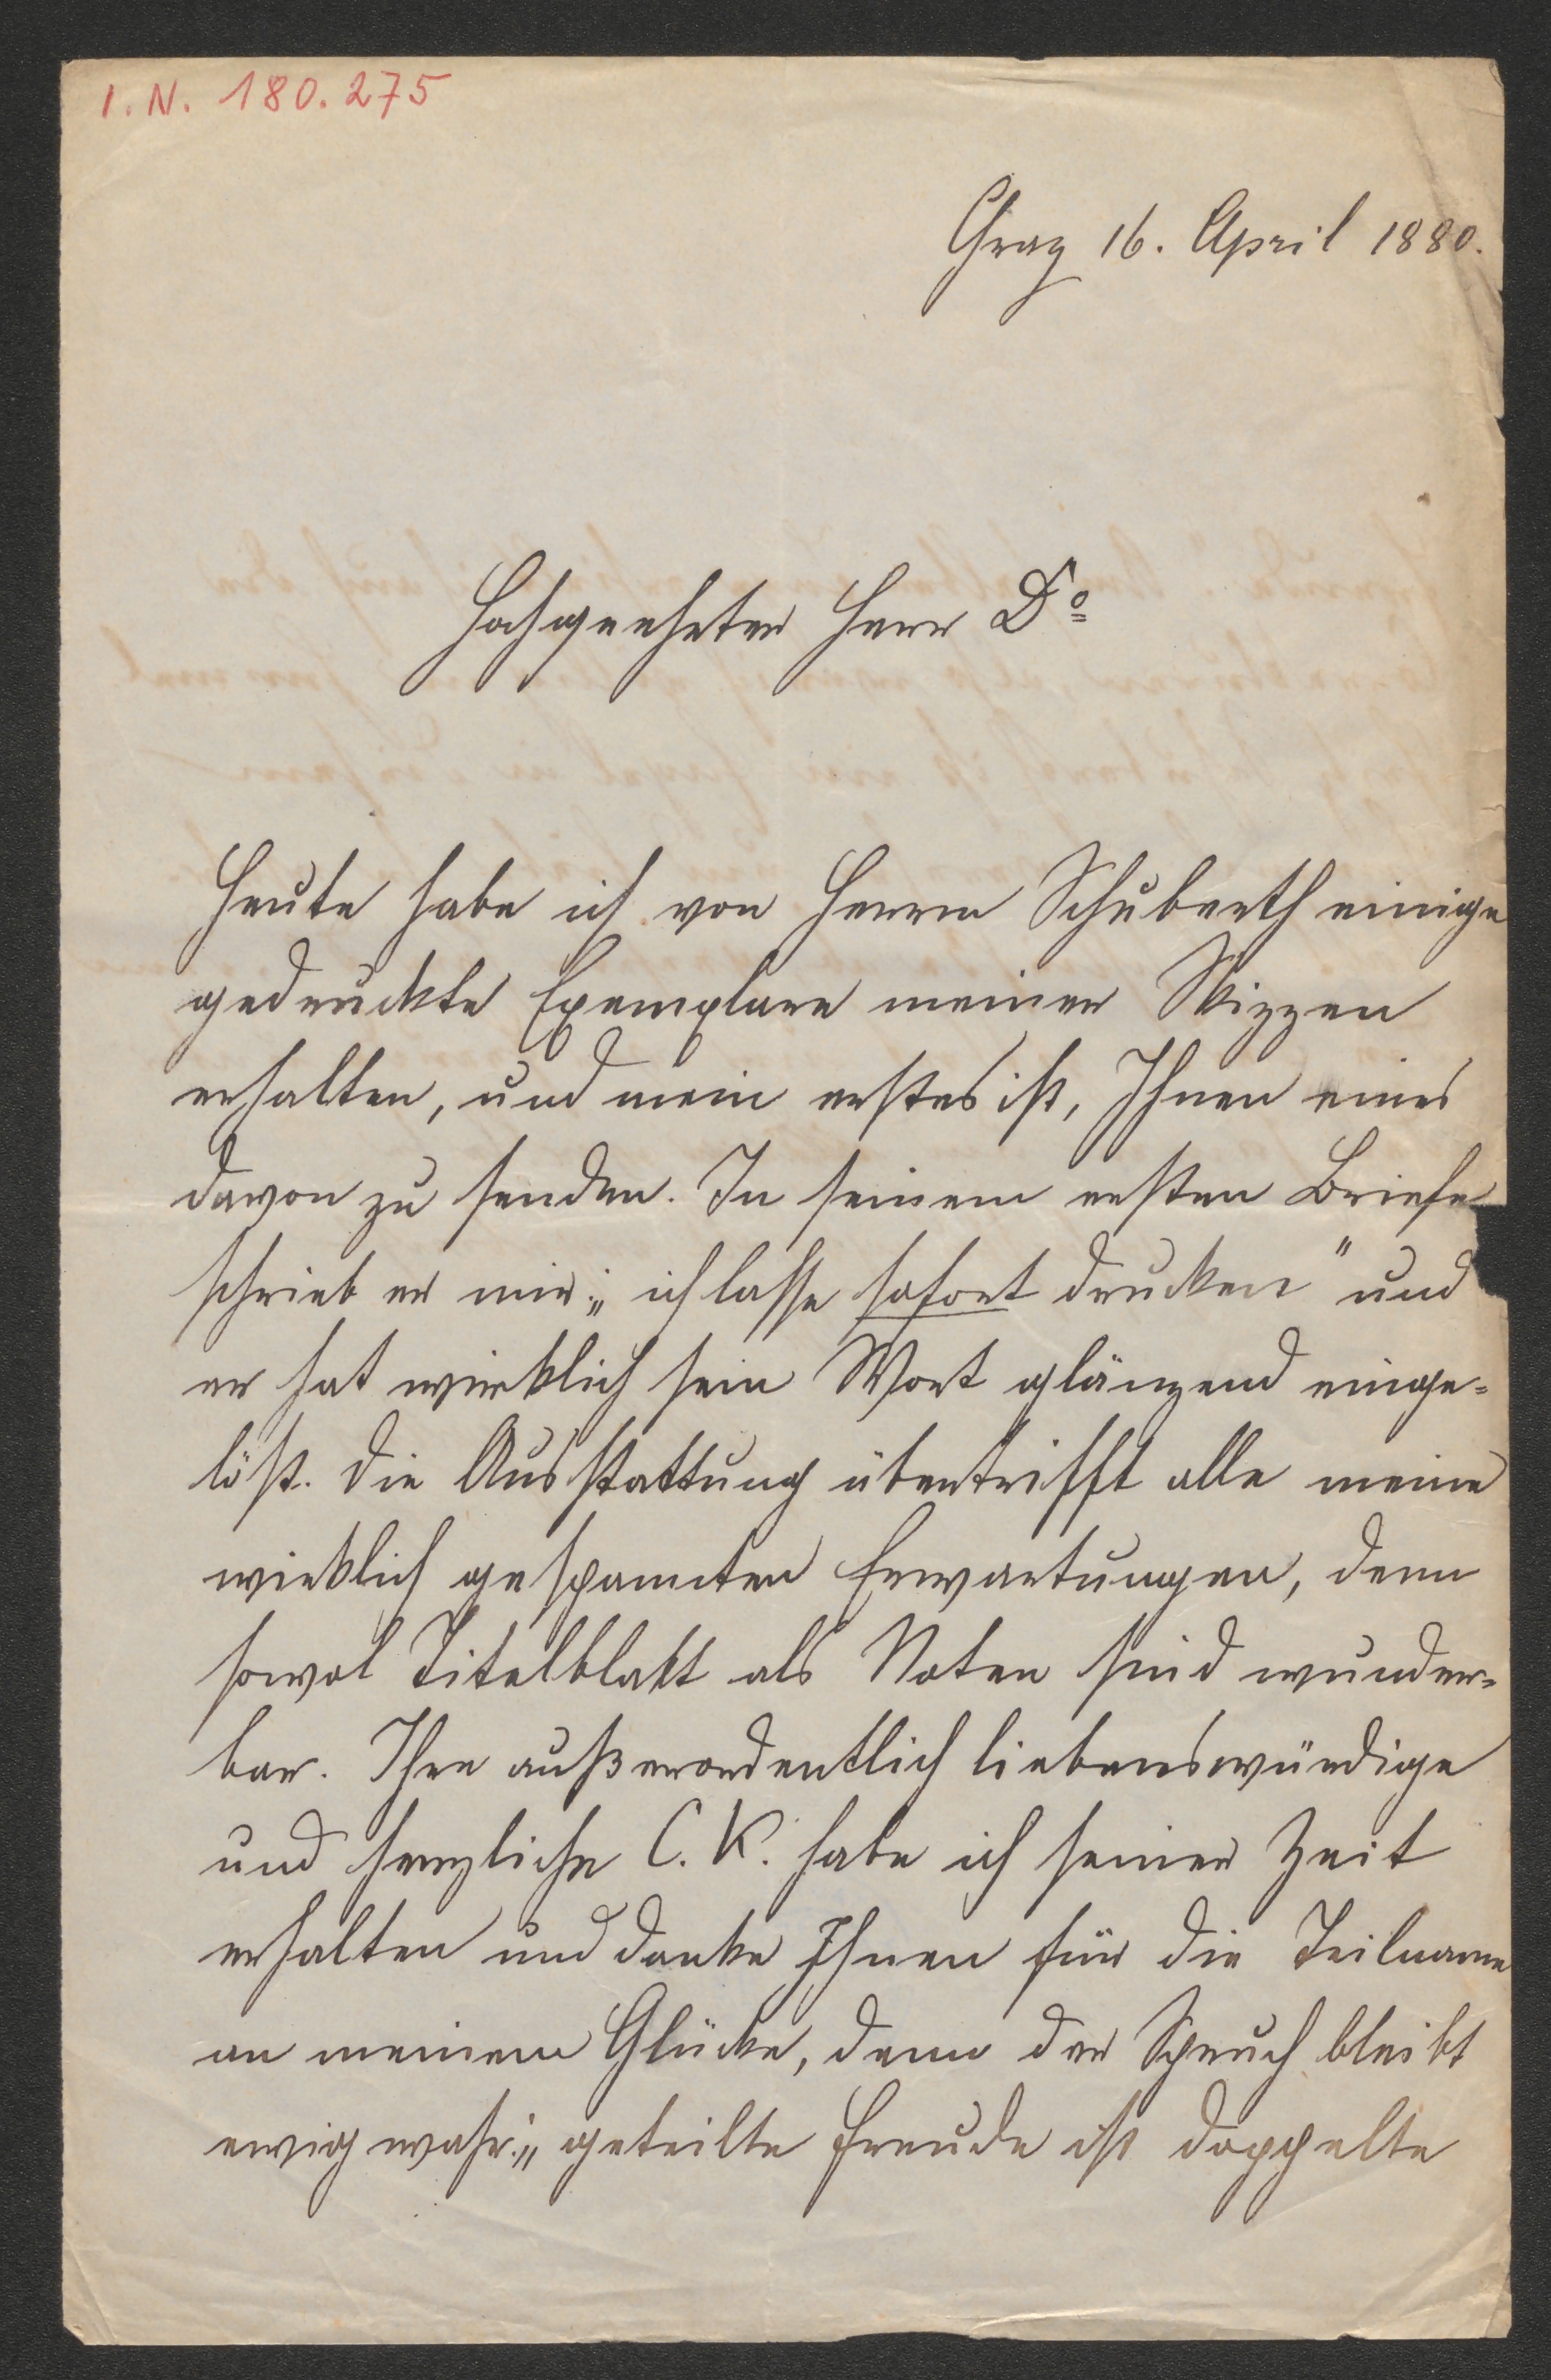 I. N. 180.275
Graz 16. April 1880.
Hochgeehrter Herr Dº
Heute habe ich von Herrn Schuberth einige
gedruckte Exemplare meiner Skizzen
erhalten, und mein erstes ist, Ihnen eines
davon zu senden. In seinem ersten Briefe
schrieb er mir: „ich lasse sofort drucken" und
er hat wirklich sein Wort glänzend einge=
löst. Die Ausstattung übertrifft alle meine
wirklich gespannten Erwartungen, denn
sowol Titelblatt als Noten sind wunder=
bar. Ihre außerordentlich liebenswürdige
und herzliche C. K. habe ich seiner Zeit
erhalten und danke Ihnen für die Teilname
an meinem Glücke, denn der Spruch bleibt
ewig wahr: „geteilte Freude ist doppelte